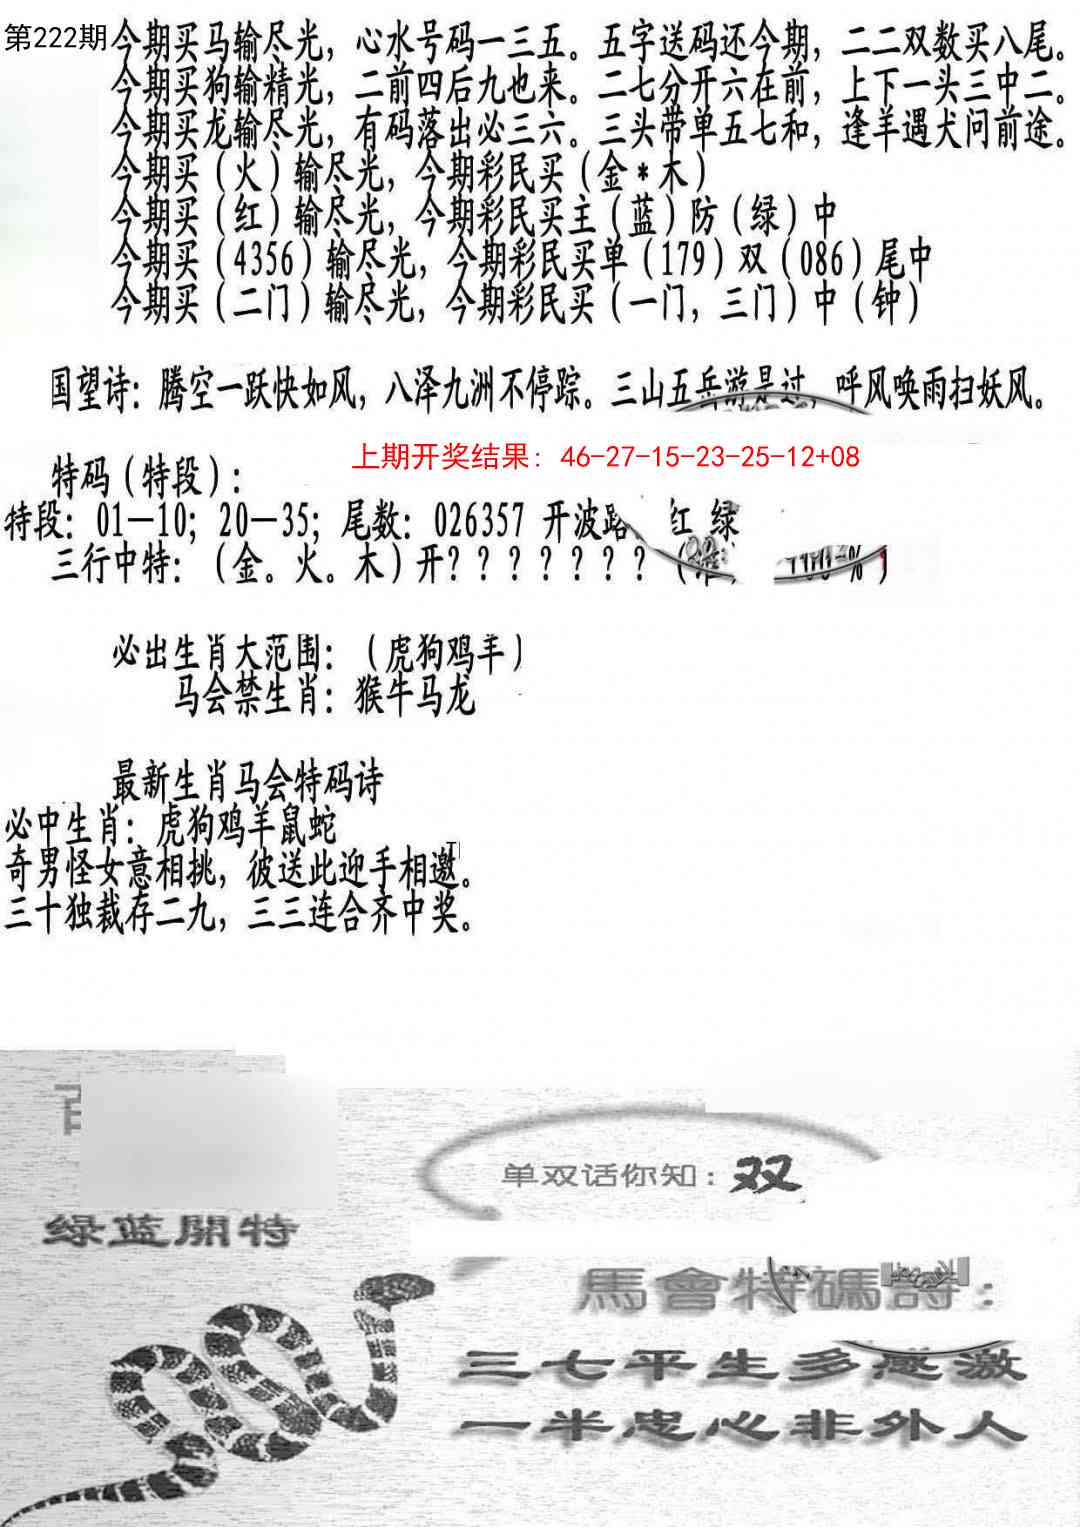 第222期今期买马输尽光，心水号码一三五。五字送码还今期，二二双数买八尾。
今期买狗输精光，二前四后九也来。二七分开六在前，上下一头三中二。
今期买龙输尽光，有码落出必三六。三头带单五七和，逢羊遇犬问前途。
今期买（火）输尽光，今期彩民买（金*木）
今期买（红）输尽光，今期彩民买主（蓝）防（绿）中
今期买（4356）输尽光，今期彩民买单（179）双（086）尾中
今期买（二门）输尽光，今期彩民买（一门，三门）中（钟）
国望诗：腾空一跃快如风，八泽九洲不停踪。三山五岳游是过，呼风唤雨扫妖风。
上期开奖结果：46-27-15-23-25-12+08
特码（特段）：
特段：01—10；20—35；尾数：026357 开波路 红 绿
三行中特：（金。火。木）开？？？？？？？
必出生肖大范围：（虎狗鸡羊）
马会禁生肖：猴牛马龙
最新生肖马会特码诗
必中生肖：虎狗鸡羊鼠蛇
奇男怪女意相挑，彼送此迎手相邀。
三十独裁存二九，三三连合齐中奖。
单双话你知：双
绿蓝開特
馬會特碼詩：
三七平生多感激
一半忠心非外人